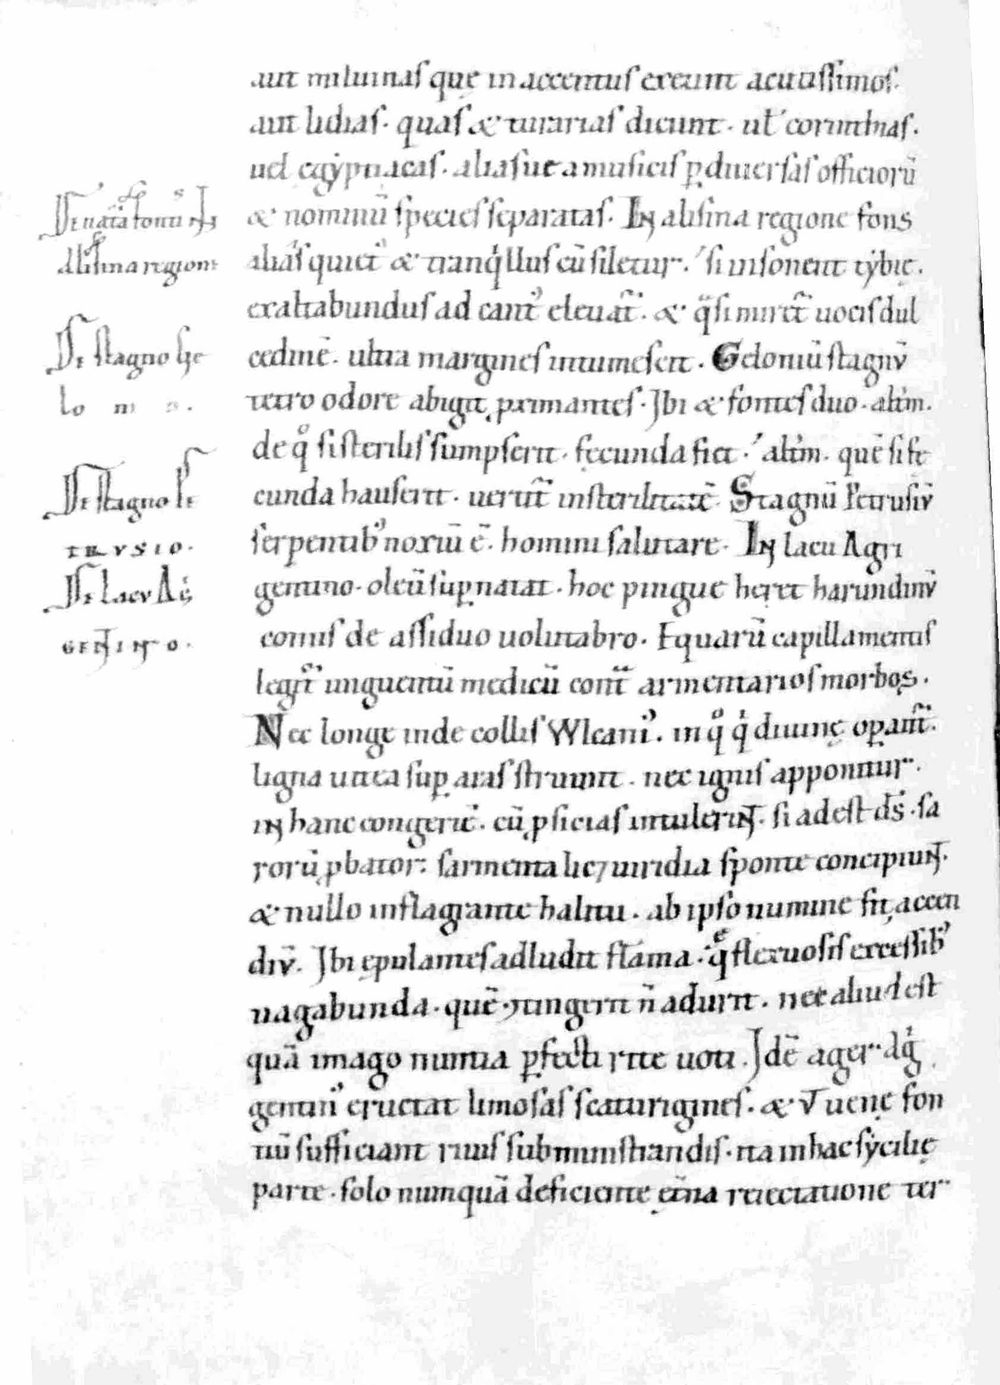 aut miluinas que in accentus exeunt acutissimos.
aut lidias. quas & turarias dicunt. ul' corinthias.
uel egẏptiacas. aliasue a musicis ꝑ diuersas officiorū
& nominū species separatas. In alisina regione fons
alias quiet' & tranq'llus cū siletur. si insonent tẏbię.
exaltabundus ad cant' eleuat'. & q̄si miret' uocis dul
cedinē. ultra margines intumescit. Geloniū stagnū
tetro odore abigit ꝓximantes. Ibi & fontes duo. alt'm.
de q° si sterilis sumpserit. fecunda fiet. alt'm. quē si fe
cunda hauserit. uertit' in sterilitatē. Stagnū Petrusiū
serpentib' noxiū ē. homini salutare. In lacu Agri
gentino. oleū suꝑnatat. hoc pingue heret harundinū
comis de assiduo uolutabro. E quarū capillamentis
legit' unguentū medicū cont' armentarios morbos.
Nec longe inde collis Wlcani'. in q° q' diuinę oꝑant'.
ligna uitea suꝑ aras struunt. nec ignis apponitur.
in hanc congeriē. cū ꝓsicias intulerint. si adest d̄s. sa
rorū ꝓbator. sarmenta licꝫ uiridia sponte concipiunt.
& nullo inflagrante halitu. ab ipso numine fit accen
diū. Ibi epulantes adludit flāma. que flexuosis excessib'
uagabunda. quē 9tingerit n̄ adurit. nec aliud est
quā imago nuntia ꝑfecti rite uoti. Idē ager Ag'
gentin' eructat limosas scaturigines. & ut uenę fon
tiū sufficiant riuis subministrandis. ita in hac sẏcilię
parte. solo numquā deficiente et'na reiectatione ter
De nat'a fontis in
alisina regione
De stagno Ge
lo ni o.
De stagno Pe
trusio.
De lacu Ag'
gentino.